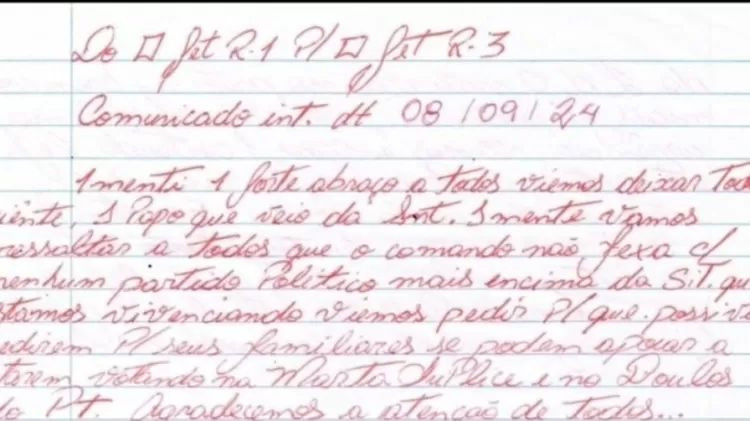 Do □ Jet R.1 P/ □ Jet R-3
Comunicado int. dt 08/09/24
1menti 1 forte abraço a todos viemos deixar Todos
iênte, 1 Papo que veio da Snt. 1mente vamos
ressaltar a todos que o comando não fexa c/
nenhum partido Politico mais encima da Sit. que
stamos vivenciando viemos pedir P/ que possivel
edirem P/ seus familiares se podem apoiar a
tarem votando na Marta Suplice e no Boulos
do Pt. Agradecemos a atenção de todos...